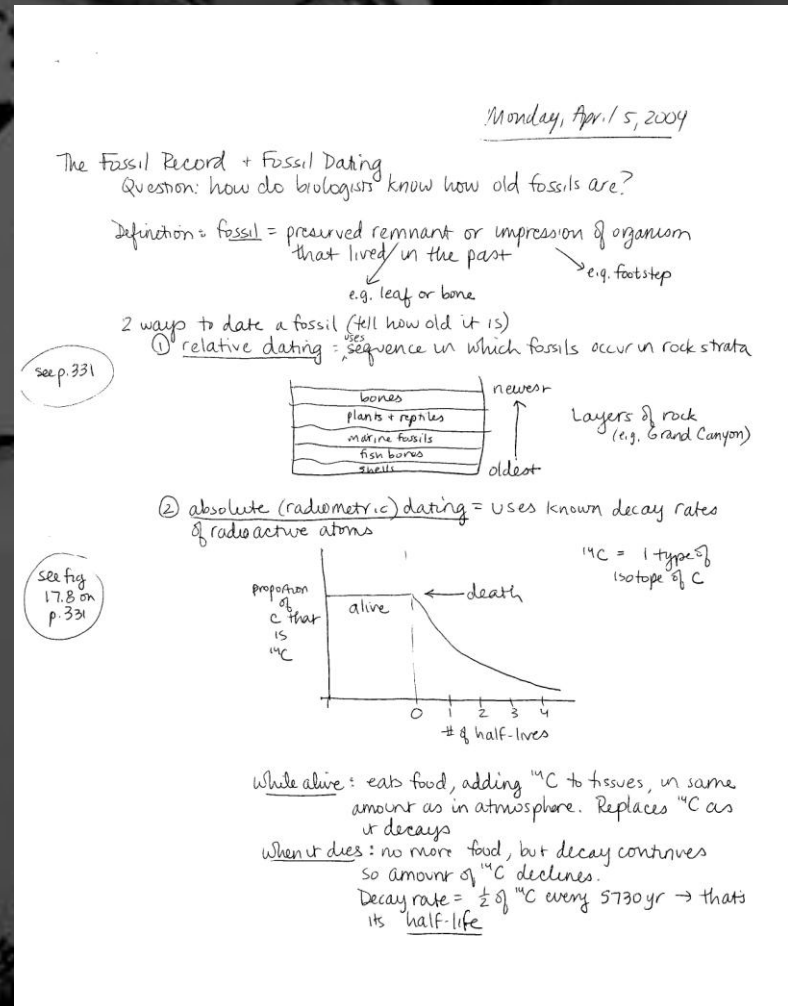 Monday, April 5, 2004
The Fossil Record + Fossil Dating
Question: how do biologists know how old fossils are?
Definition: fossil = preserved remnant or impression of organism
that lived in the past
e.g. footstep
e.g. leaf or bone
2 ways to date a fossil (tell how old it is)
① relative dating = uses sequence in which fossils occur in rock strata
see p. 331
bones
plants + reptiles
marine fossils
fish bones
shells
newest
oldest
Layers of rock
(e.g. Grand Canyon)
② absolute (radiometric) dating = uses known decay rates
of radioactive atoms
see fig
17.8 on
p. 331
¹⁴C = 1 type of
isotope of C
proportion
of
C that
is
¹⁴C
alive
death
0 1 2 3 4
# of half-lives
While alive: eats food, adding ¹⁴C to tissues, in same
amount as in atmosphere. Replaces ¹⁴C as
it decays
When it dies: no more food, but decay continues
so amount of ¹⁴C declines.
Decay rate = ½ of ¹⁴C every 5730 yr → that's
its half-life